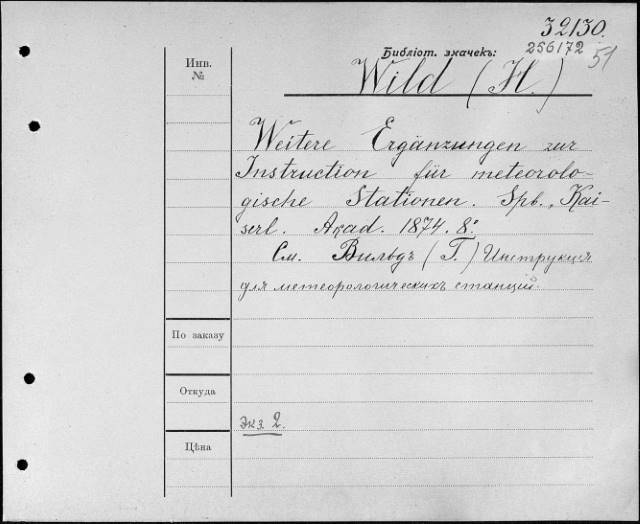 32130.
Библіот. значекъ:
256172
51
Инв.
№
Wild (H.)
Weitere Ergänzungen zur
Instruction für meteorolo-
gische Stationen. Spb., Kai-
serl. Akad. 1874. 8º.
См. Вильдъ (Г.) Инструкция
для метеорологическихъ станцій.
По заказу
Откуда
экз. 2.
Цѣна